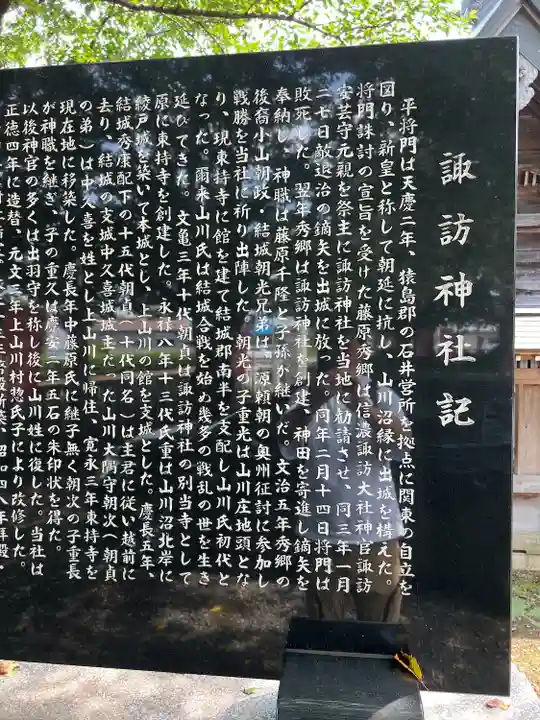 諏訪神社記
平将門は天慶二年、猿島郡の石井営所を拠点に関東の自立を
図り、新皇と称して朝廷に抗し、山川沼縁に出城を構えた。
将門誅討の宣旨を受けた藤原秀郷は信濃諏訪大社神官諏訪
安芸守元親を祭主に諏訪神社を当地に勧請させ、同三年一月
二七日敵退治の鏑矢を出城に放った。同年二月十四日将門は
敗死した。翌年秀郷は諏訪神社を創建、神田を寄進し鏑矢を
奉納し、神職は藤原千隆と子孫が継いだ。文治五年秀郷の
後裔小山朝政・結城朝光兄弟は、源頼朝の奥州征討に参加し
戦勝を当社に祈り出陣した。朝光の子重光は山川庄地頭とな
り、現東持寺に館を建て結城郡南半を支配し山川氏初代と
なった。爾来山川氏は結城合戦を始め幾多の戦乱の世を生き
延びてきた。文亀三年十代朝貞は諏訪神社の別当寺として
原に東持寺を創建した。永禄八年十三代氏重は山川沼北岸に
綾戸城を築いて本城とし、上山川の館を支城とした。慶長五年、
結城秀康配下の十五代朝貞(十代同名)は主君に従い越前に
去り、結城の支城中久喜城城主だった山川大隅守朝次(朝貞
の弟)は中久喜を姓とし上山川に帰住、寛永三年東持寺を
現在地に移築した。慶長年中藤原氏に継子無く朝次の子重長
が神職を継ぎ、子の重久は慶安二年五石の朱印状を得た。
以後神官の多くは出羽守を称し後に山川姓に復した。当社は
正徳四年に造替、元文三年上山川村惣氏子により改修した。
昭和四八年拝殿・